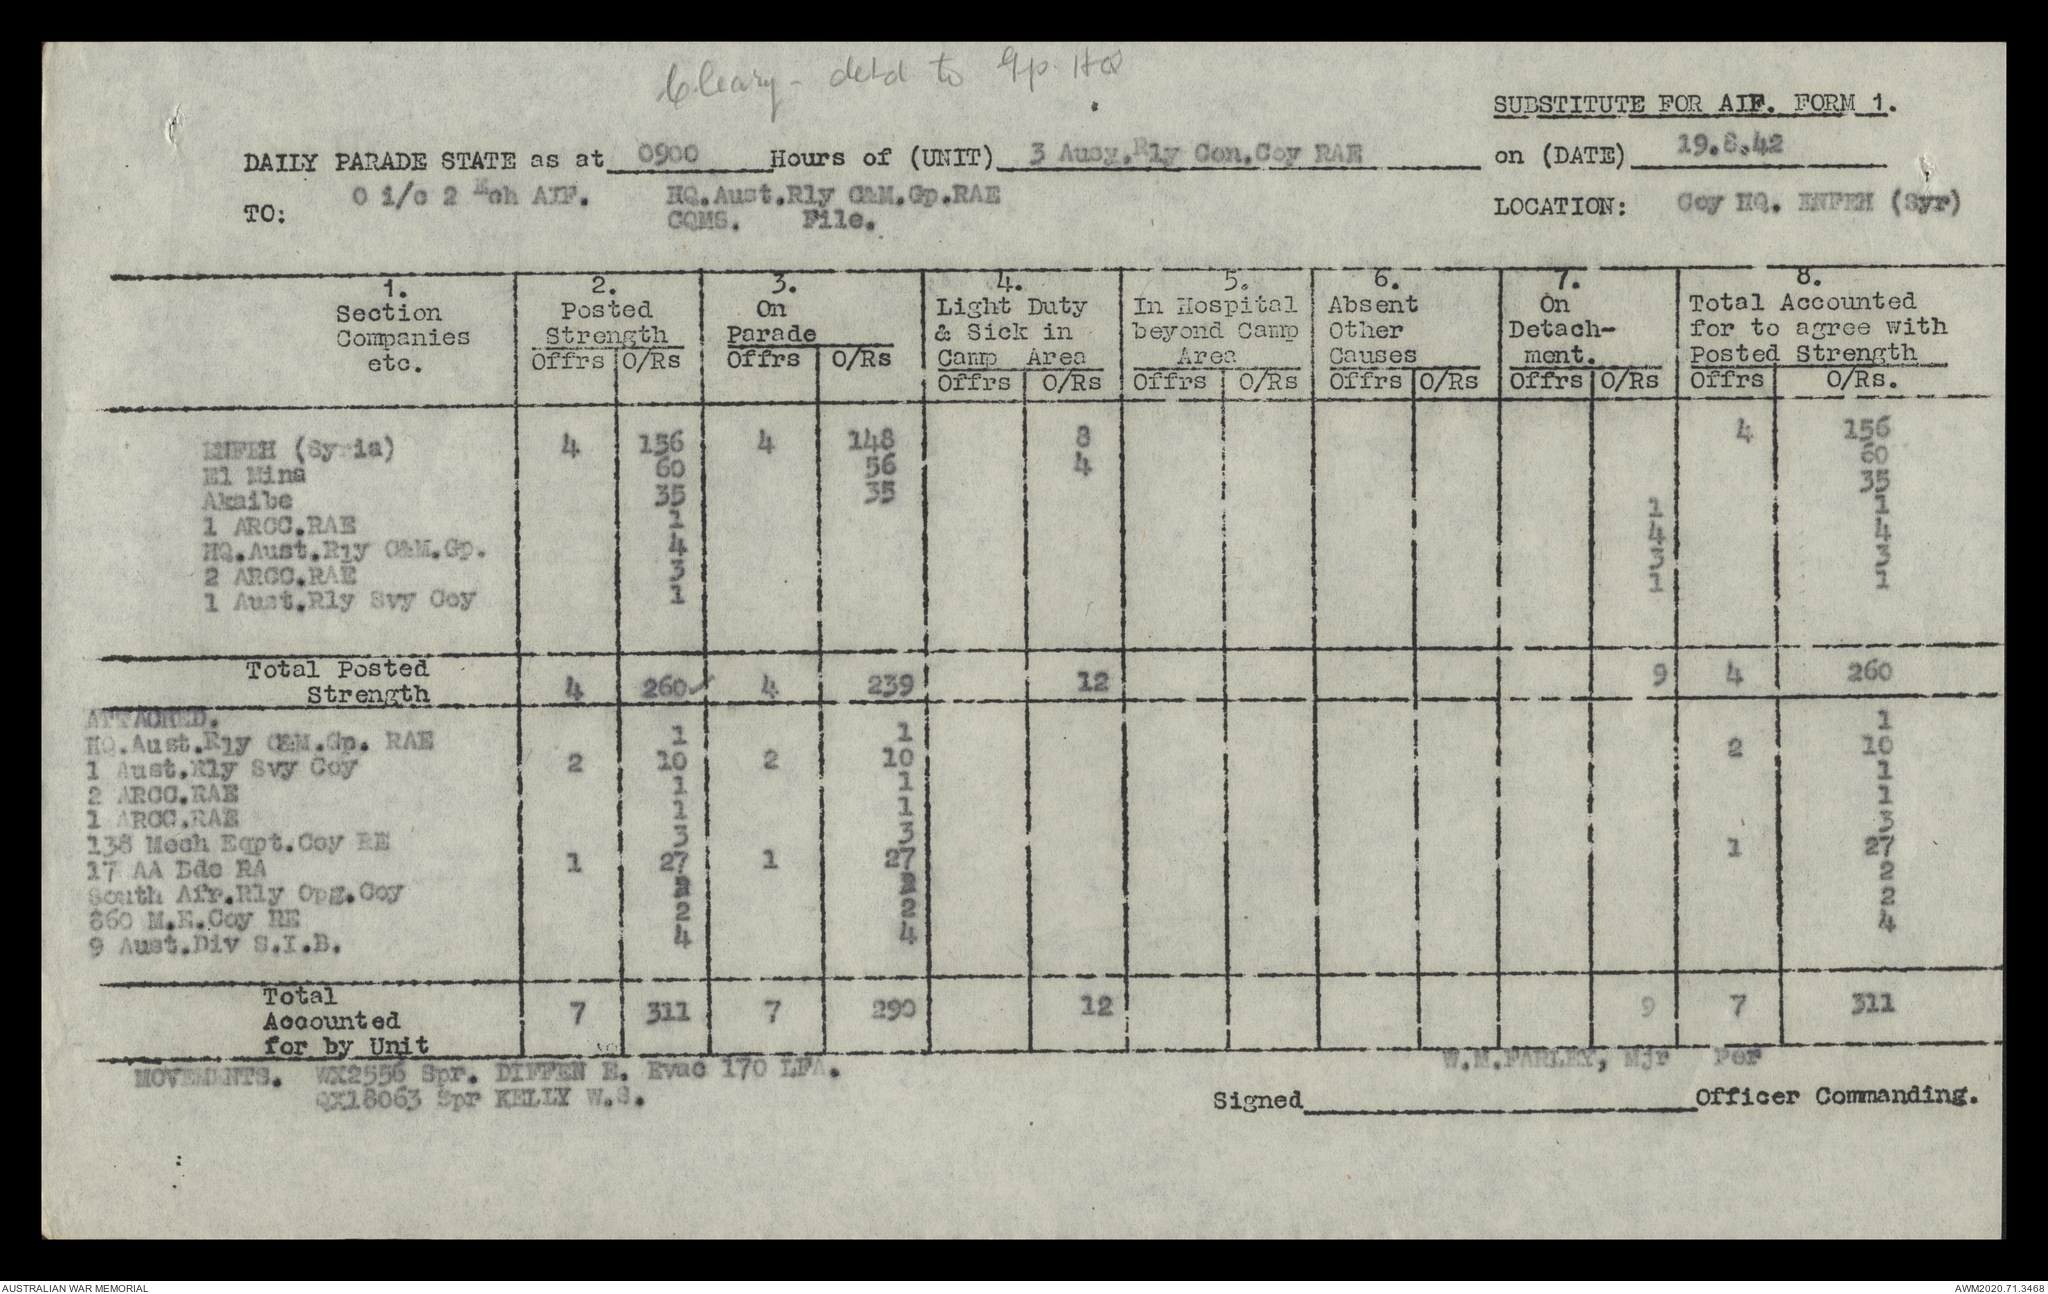 Cleary - detd to Gp. HQ
SUBSTITUTE FOR AIF. FORM 1.
DAILY PARADE STATE as at 0900 Hours of (UNIT) 3 Ausy.Rly Con.Coy RAE on (DATE) 19.8.42
TO: O i/c 2 Ech AIF. HQ.Aust.Rly C&M.Gp.RAE LOCATION: Coy HQ. ENFEH (Syr)
CQMS. File.
1. 2. 3. 4. 5. 6. 7. 8.
Section Posted On Light Duty In Hospital Absent On Total Accounted
Companies Strength Parade & Sick in beyond Camp Other Detach- for to agree with
etc. Camp Area Area Causes ment. Posted Strength
Offrs O/Rs Offrs O/Rs Offrs O/Rs Offrs O/Rs Offrs O/Rs Offrs O/Rs Offrs O/Rs.
ENFEH (Syria) 4 156 4 148 8 4 156
El Mina 60 56 4 60
Akaibe 35 35 35
1 ARCC.RAE 1 1 1
HQ.Aust.Rly C&M.Gp. 4 4 4
2 ARCC.RAE 3 3 3
1 Aust.Rly Svy Coy 1 1 1
Total Posted
Strength 4 260 4 239 12 9 4 260
ATTACHED.
HQ.Aust.Rly C&M.Gp. RAE 1 1 1
1 Aust.Rly Svy Coy 2 10 2 10 2 10
2 ARCC.RAE 1 1 1
1 ARCC.RAE 1 1 1
138 Mech Eqpt.Coy RE 3 3 3
17 AA Bde RA 1 27 1 27 1 27
South Afr.Rly Opg.Coy 2 2 2
860 M.E.Coy RE 2 2 2
9 Aust.Div S.I.B. 4 4 4
Total
Accounted
for by Unit 7 311 7 290 12 9 7 311
MOVEMENTS. WX2556 Spr. DIFFEN E. Evac 170 LFA. W.M.FARLEY, Mjr Per
QX18063 Spr KELLY W.S. Signed Officer Commanding.
AUSTRALIAN WAR MEMORIAL AWM2020.71.3468